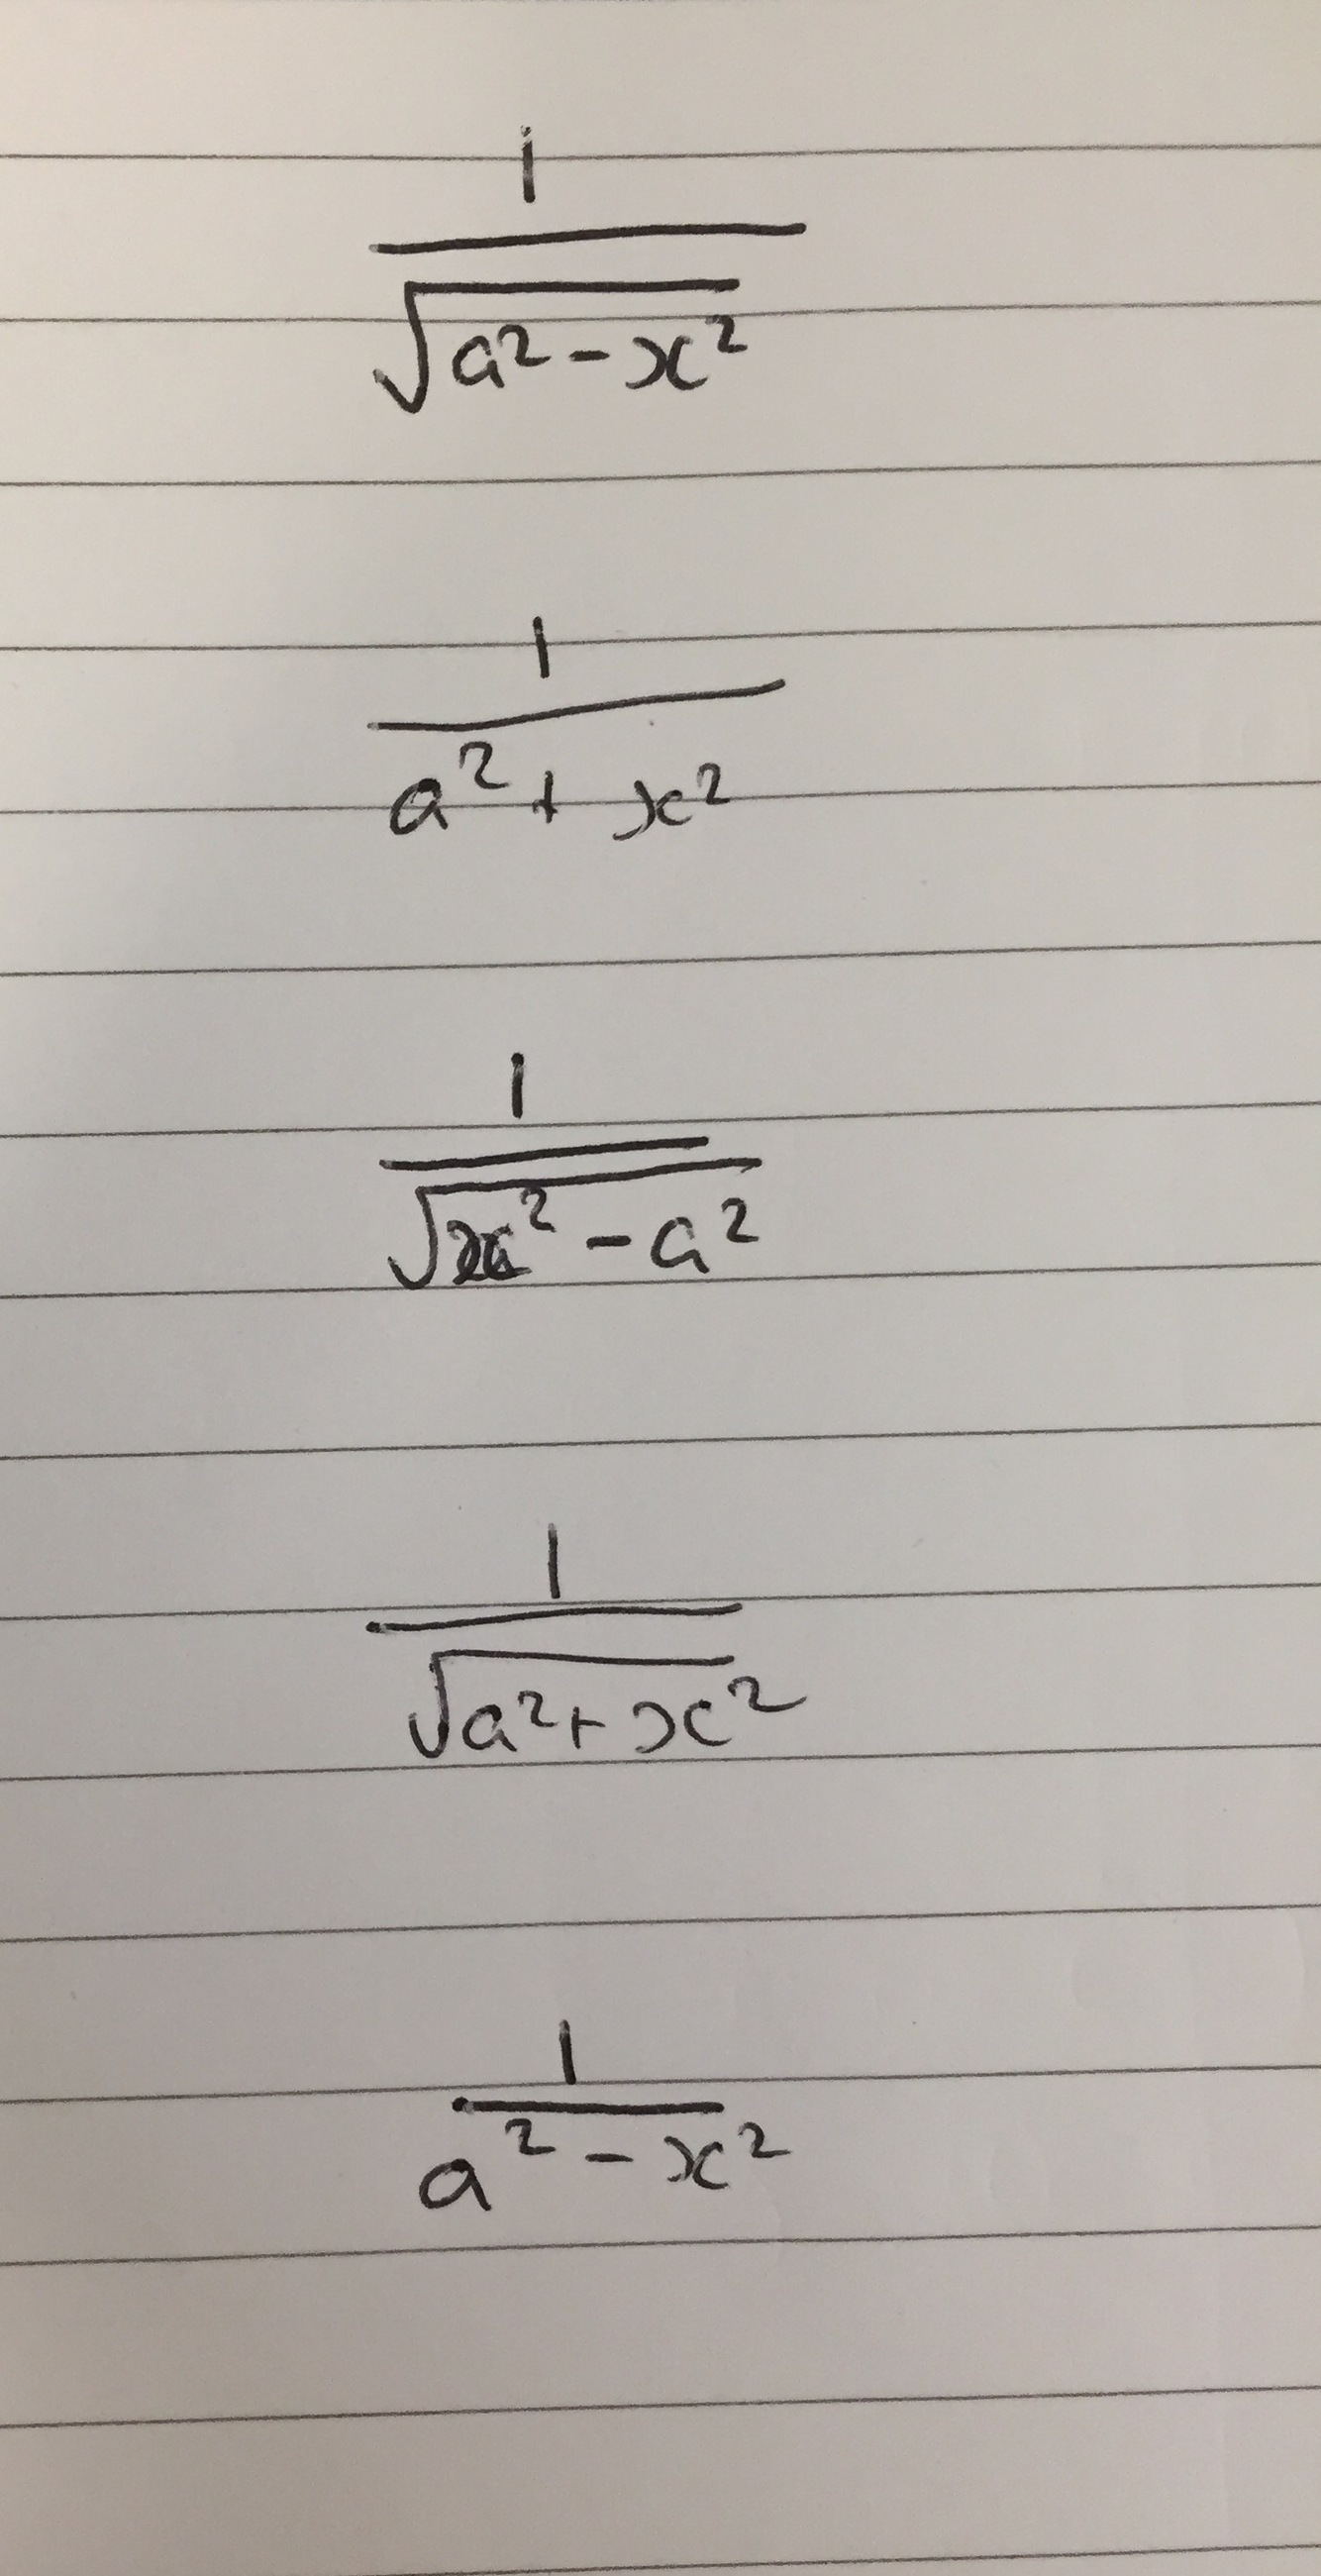 1
√a² - x²
1
a² + x²
1
√x² - a²
1
√a² + x²
1
a² - x²